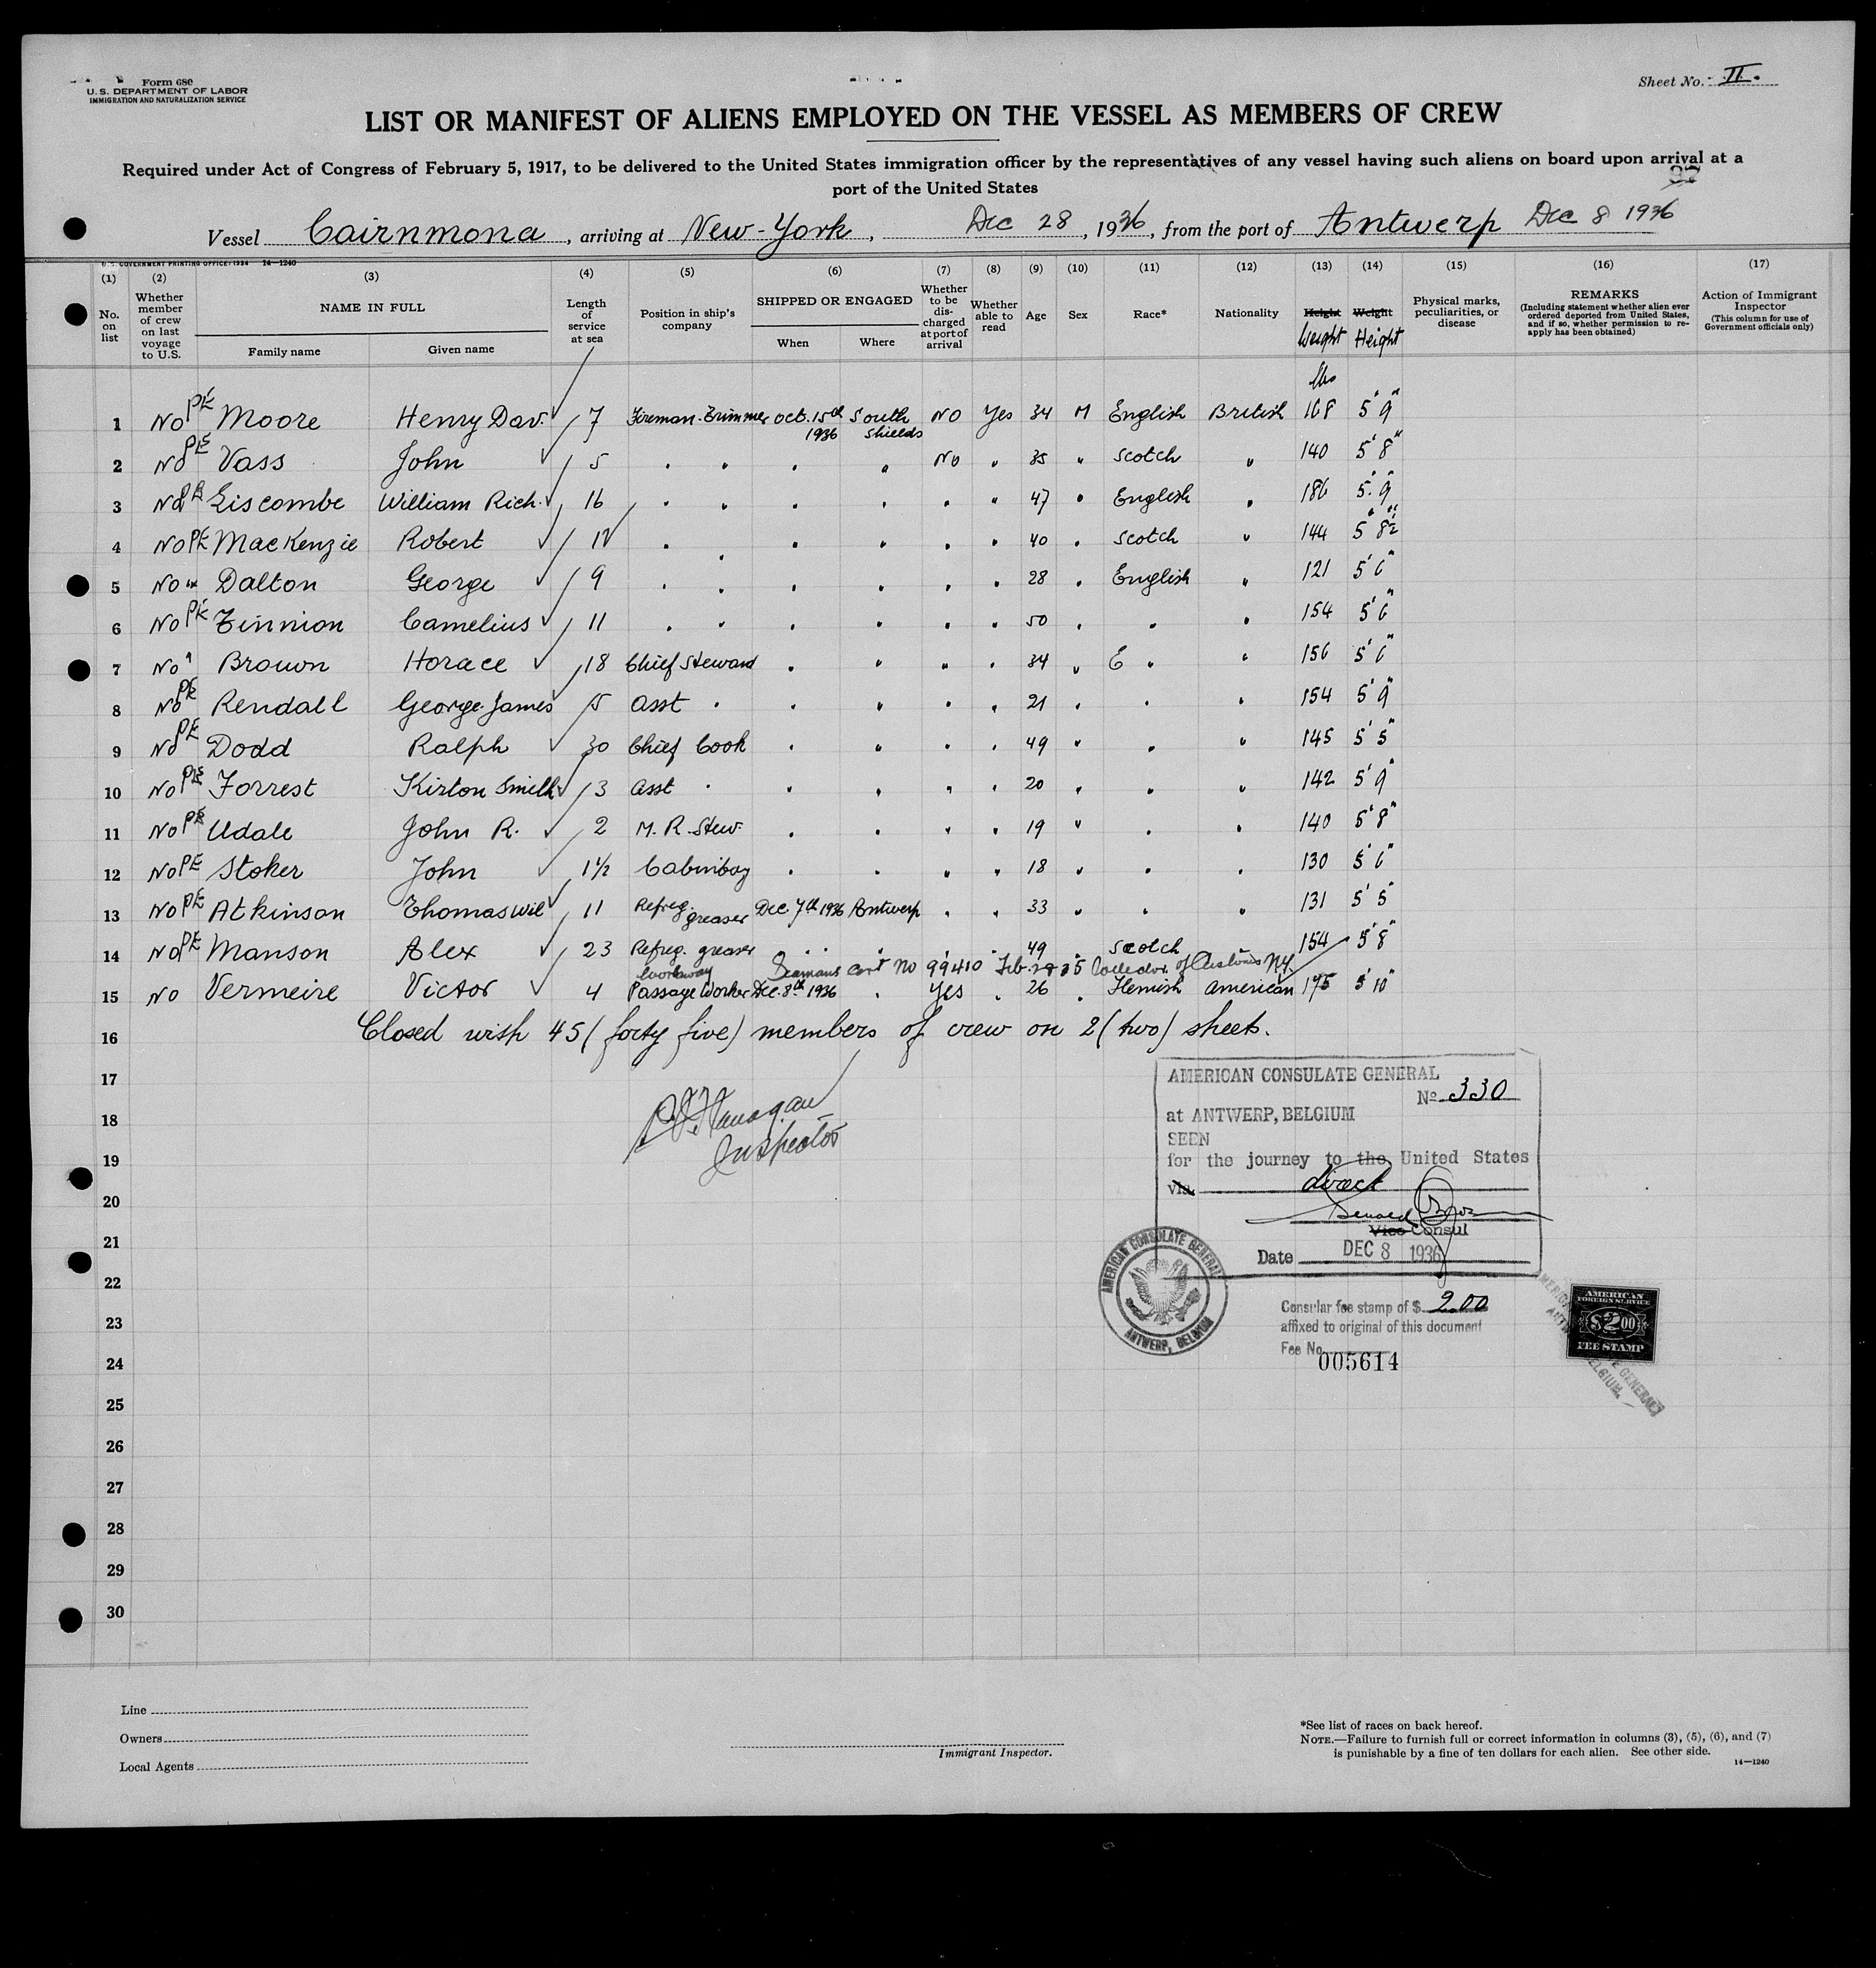 Form 680
U. S. DEPARTMENT OF LABOR
IMMIGRATION AND NATURALIZATION SERVICE
Sheet No. II.
LIST OR MANIFEST OF ALIENS EMPLOYED ON THE VESSEL AS MEMBERS OF CREW
Required under Act of Congress of February 5, 1917, to be delivered to the United States immigration officer by the representatives of any vessel having such aliens on board upon arrival at a
port of the United States
97
Vessel Cairnmona, arriving at New-York, Dec 28, 1936, from the port of Antwerp Dec 8 1936
U. S. GOVERNMENT PRINTING OFFICE: 1934 14—1240
(1) (2) (3) (4) (5) (6) (7) (8) (9) (10) (11) (12) (13) (14) (15) (16) (17)
No. on list
Whether member of crew on last voyage to U.S.
NAME IN FULL
Family name Given name
Length of service at sea
Position in ship's company
SHIPPED OR ENGAGED
When Where
Whether to be discharged at port of arrival
Whether able to read
Age
Sex
Race*
Nationality
Height Weight
Weight Height
Physical marks, peculiarities, or disease
REMARKS
(Including statement whether alien ever ordered deported from United States, and if so, whether permission to reapply has been obtained)
Action of Immigrant Inspector
(This column for use of Government officials only)
lbs
1 No PE Moore Henry Dav. 7 Fireman-Trimmer Oct. 15th 1936 South Shields No Yes 34 M English British 168 5' 9"
2 No PE Vass John 5 " " " " No " 35 " Scotch " 140 5' 8"
3 No Liscombe William Rich. 16 " " " " " " 47 " English " 186 5' 9"
4 No PE MacKenzie Robert " " " " " " 40 " Scotch " 144 5' 8½"
5 No Dalton George 9 " " " " " " 28 " English " 121 5' 6"
6 No PE Tinnion Camelius 11 " " " " " " 50 " " " 154 5' 6"
7 No Brown Horace 18 Chief Steward " " " " 34 " E " " 156 5' 6"
8 No PE Rendall George James 5 Asst " " " " " 21 " " " 154 5' 9"
9 No PE Dodd Ralph 30 Chief Cook " " " " 49 " " " 145 5' 5"
10 No PE Forrest Kirton Smith 3 Asst " " " " " 20 " " " 142 5' 9"
11 No PE Udale John R. 2 M. R. Stew. " " " " 19 " " " 140 5' 8"
12 No PE Stoker John 1½ Cabinboy " " " " 18 " " " 130 5' 6"
13 No PE Atkinson Thomas Wil 11 Refreg. greaser Dec. 7th 1936 Antwerp " " 33 " " " 131 5' 5"
14 No PE Manson Alex 23 Refreg. greaser " " " " 49 Scotch " 154 5' 8"
Workaway Seamans Cert No 99410 Feb. 35 Collector of Customs NY
15 No Vermeire Victor 4 Passage Worker Dec. 8th 1936 " Yes " 26 " Flemish American 175 5' 10"
16 Closed with 45 (forty five) members of crew on 2 (two) sheets.
17
18 Flanagan
Inspector
19
20
21
22
23
24
25
26
27
28
29
30
AMERICAN CONSULATE GENERAL
No 330
at ANTWERP, BELGIUM
SEEN
for the journey to the United States
via direct
Vice Consul
Date DEC 8 1936
AMERICAN CONSULATE GENERAL
ANTWERP, BELGIUM
Consular fee stamp of $ 2.00
affixed to original of this document
Fee No. 005614
AMERICAN
FOREIGN SERVICE
$2.00
FEE STAMP
Line
Owners
Local Agents
Immigrant Inspector.
*See list of races on back hereof.
NOTE.—Failure to furnish full or correct information in columns (3), (5), (6), and (7)
is punishable by a fine of ten dollars for each alien. See other side.
14—1240